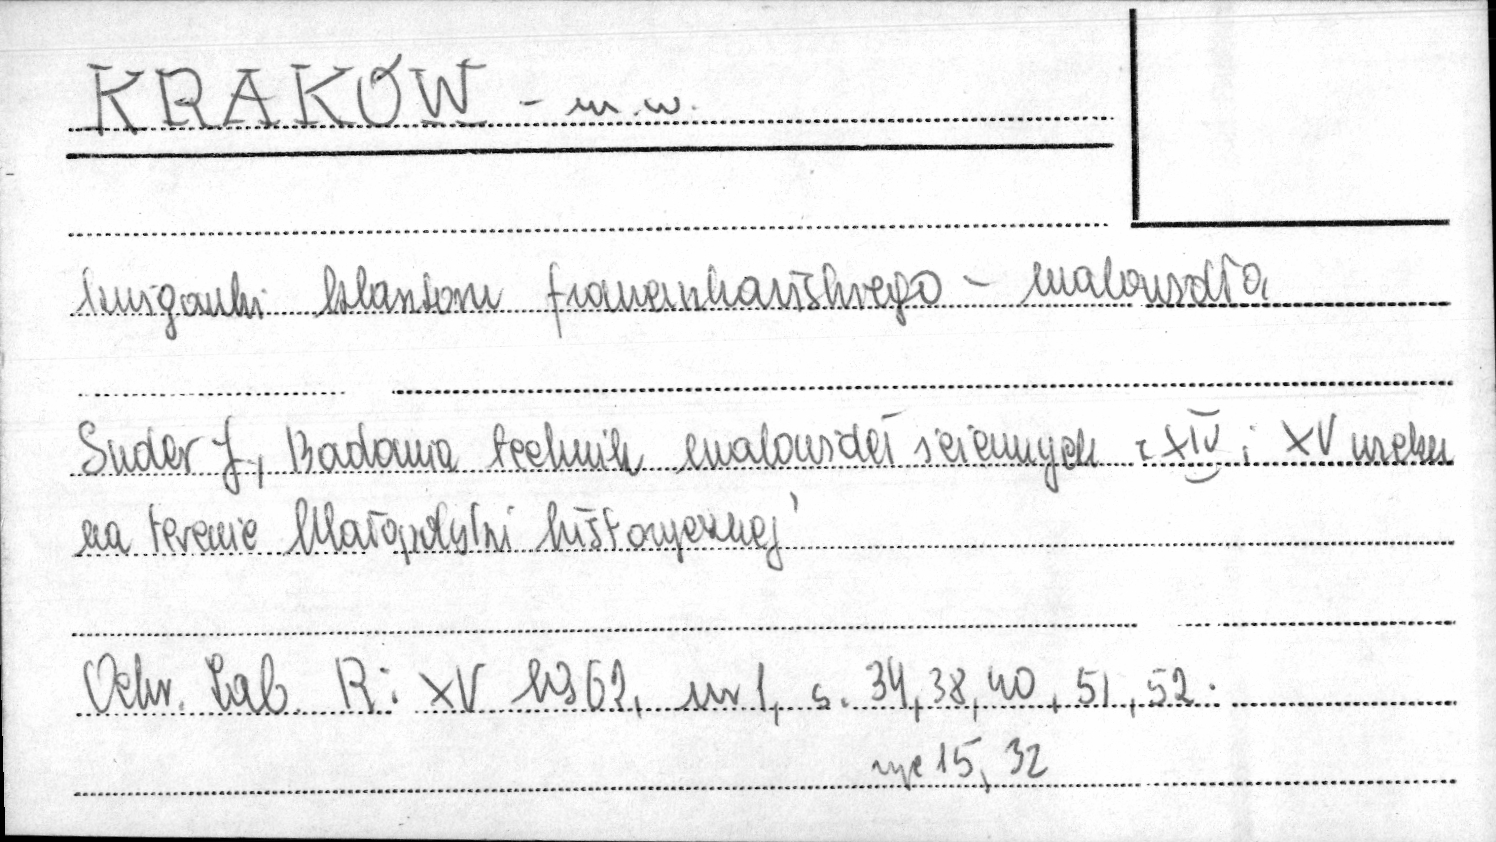 KRAKÓW - m.w.
krużganki klasztoru franciszkańskiego - malowidła
Suder J., Badania technik malowideł ściennych z XIV i XV wieku
na terenie Małopolski historycznej
Ochr. Zab. R: XV 1962, nr 1, s. 34, 38, 40, 51, 52.
ryc 15, 32